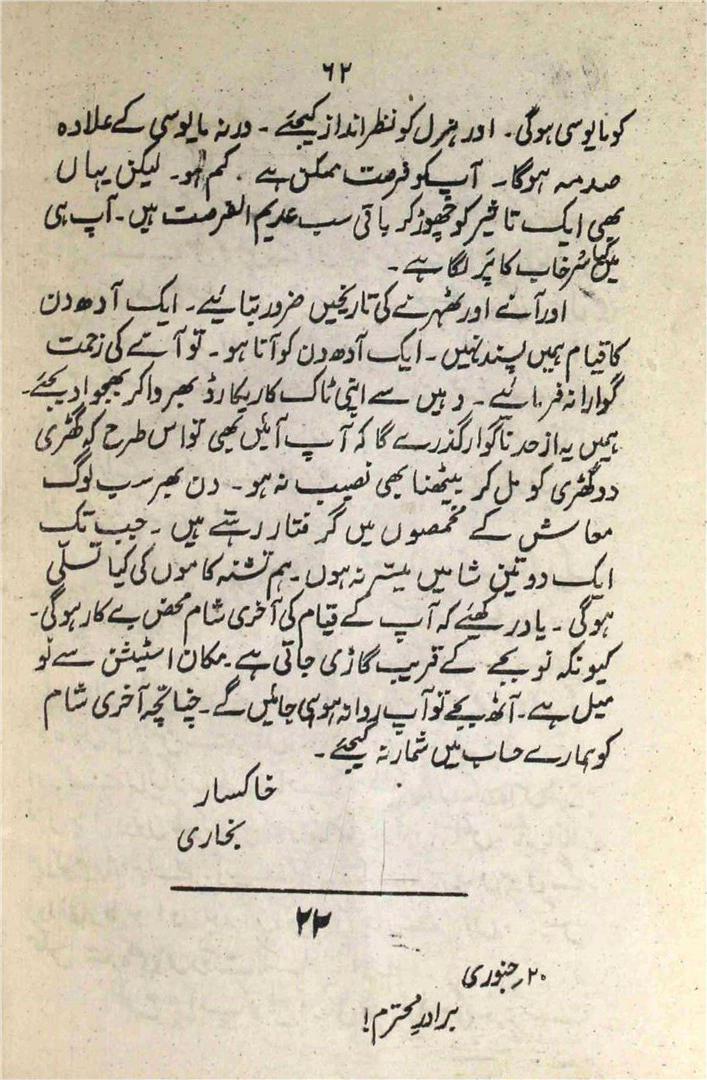 ۶۲
کو مایوسی ہوگی۔ اور ہنرل کو نظر انداز کیجئے۔ ورنہ مایوسی کے علاوہ
صدمہ ہوگا۔ آپ کو فرصت ممکن ہے۔ کم ہو۔ لیکن یہاں
بھی ایک تاثیر کو چھوڑ کر باقی سب عدیم الفرصت ہیں۔ آپ ہی
میں کیا سُرخاب کا پَر لگا ہے۔
اور آنے اور ٹھہرنے کی تاریخیں ضرور بتائیے۔ ایک آدھ دن
کا قیام ہمیں پسند نہیں۔ ایک آدھ دن کو آنا ہو۔ تو آنے کی زحمت
گوارا نہ فرمائیے۔ وہیں سے اپنی ٹاک کا ریکارڈ بھروا کر بھجوا دیجئے۔
ہمیں یہ از حد ناگوار گذرے گا کہ آپ آئیں بھی تو اس طرح کہ گھڑی
دو گھڑی کو مل کر بیٹھنا بھی نصیب نہ ہو۔ دن بھر سب لوگ
معاش کے مخمصوں میں گرفتار رہتے ہیں۔ جب تک
ایک دو تین شامیں میسّر نہ ہوں۔ ہم تشنہ کاموں کی کیا تسلّی
ہوگی۔ یاد رکھیئے کہ آپ کے قیام کی آخری شام محض بے کار ہوگی۔
کیونکہ نو بجے کے قریب گاڑی جاتی ہے۔ مکان اسٹیشن سے نو
میل ہے۔ آٹھ بجے تو آپ روانہ ہو ہی جائیں گے۔ چنانچہ آخری شام
کو ہمارے حساب میں شمار نہ کیجئے۔
خاکسار
بخاری
۲۲
۲۰ جنوری
برادرِ محترم!